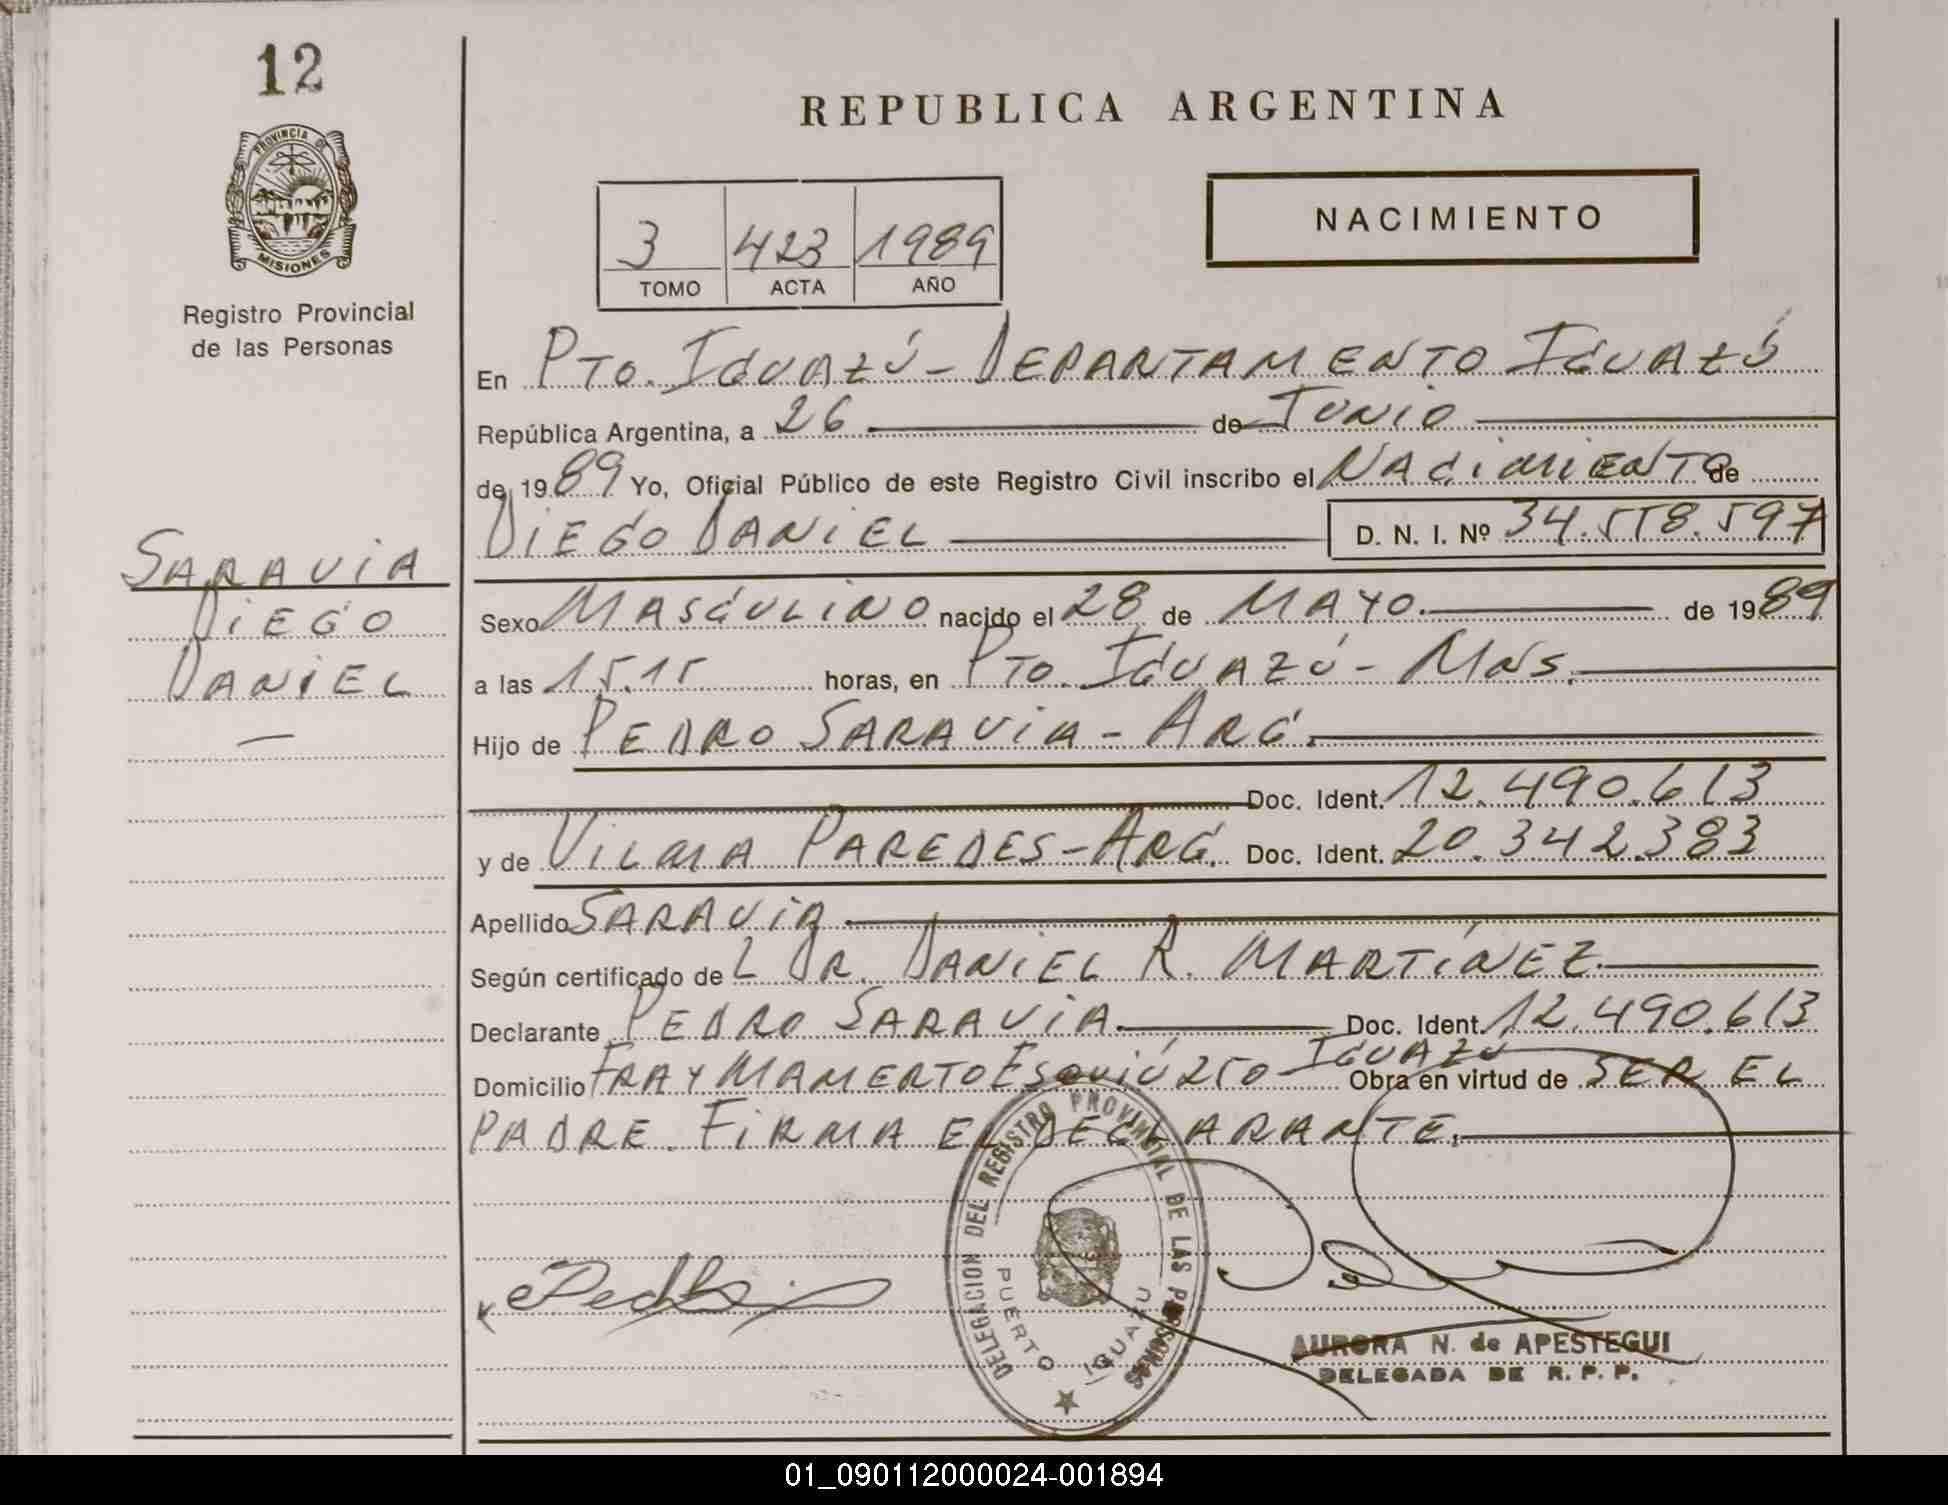 12
PROVINCIA DE
MISIONES
Registro Provincial
de las Personas
SARAVIA
DIEGO
DANIEL
REPUBLICA ARGENTINA
NACIMIENTO
3 423 1989
TOMO ACTA AÑO
En PTO. IGUAZÚ - DEPARTAMENTO IGUAZÚ
República Argentina, a 26 de JUNIO
de 1989 Yo, Oficial Público de este Registro Civil inscribo el NACIMIENTO de
DIEGO DANIEL D. N. I. Nº 34.558.597
Sexo MASCULINO nacido el 28 de MAYO. de 1989
a las 15.15 horas, en PTO. IGUAZÚ - MNS.
Hijo de PEDRO SARAVIA - ARG.
Doc. Ident. 12.490.613
y de VILMA PAREDES - ARG. Doc. Ident. 20.342.383
Apellido SARAVIA
Según certificado de L DR. DANIEL R. MARTÍNEZ
Declarante PEDRO SARAVIA. Doc. Ident. 12.490.613
Domicilio FRAY MAMERTO ESQUIÚ 250 IGUAZÚ Obra en virtud de SER EL
PADRE. FIRMA EL DECLARANTE.
DELEGACION DEL REGISTRO PROVINCIAL DE LAS PERSONAS
PUERTO IGUAZU
AURORA N. de APESTEGUI
DELEGADA DE R. P. P.
01_090112000024-001894